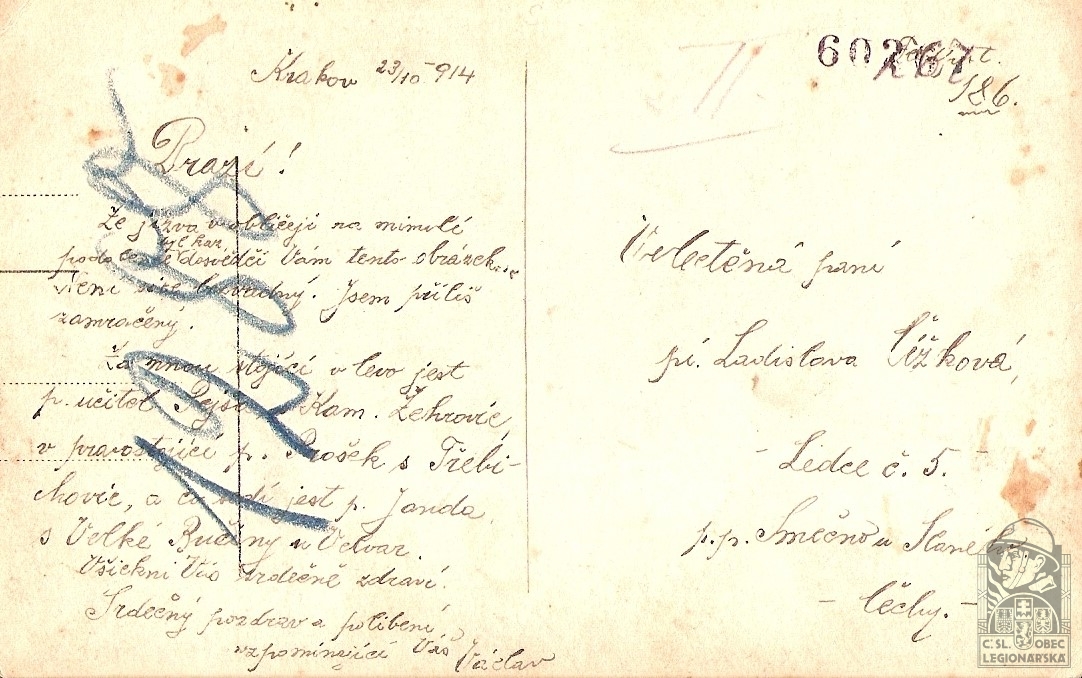 Krakov 23/10 914
Drazí!
Že jizva v obličeji na minulé
podobence
důsvědčí Vám tento obrázek.
Není
vadný. Jsem příliš
zamračený.
Za mnou stojící v levo jest
p. učitel Pejša Kam. Žehrovic,
v pravo stojící p. Prošek s Třebi-
chovic, a co sedí jest p. Janda
s Velké Bučiny u Velvar.
Všickni Vás srdečně zdraví.
Srdečný pozdrav a políbení
vzpomínající Váš Václav
60267
II.
186.
Velectěná paní
pí. Ladislava Čížková,
- Ledce č. 5. -
p.p. Smečno u Slaného
- Čechy. -
Č.SL. OBEC
LEGIONÁŘSKÁ